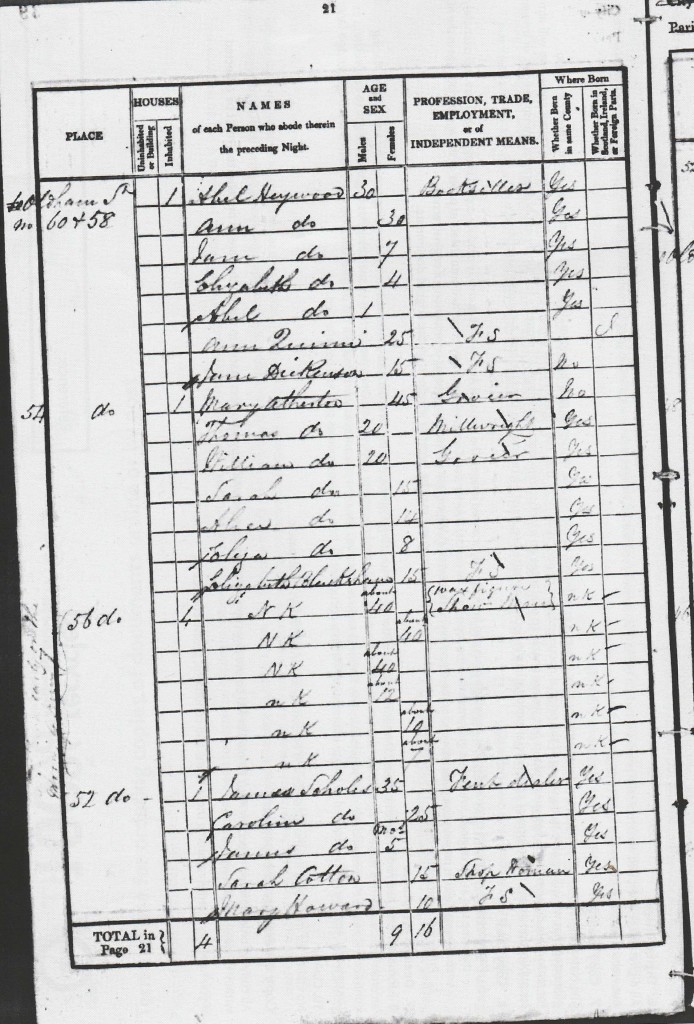 21
PLACE
HOUSES
Uninhabited or Building
Inhabited
NAMES
of each Person who abode therein
the preceding Night.
AGE
and
SEX
Males
Females
PROFESSION, TRADE,
EMPLOYMENT,
or of
INDEPENDENT MEANS.
Where Born
Whether Born in same County
Whether Born in Scotland, Ireland, or Foreign Parts.
Pari
Oldham St 1 Abel Heywood 30 Bookseller Yes
no 60 & 58 Ann do 30 Yes
Jane do 7 Yes
Elizabeth do 4 Yes
Abel do 1 Yes
Ann 25 F S S
Jane Dickenson 15 F S No
54 do 1 Mary Atherton 45 Grocer No
Thomas do 20 Millwright Yes
William do 20 Grocer Yes
Sarah do 15 Yes
Alice do 14 Yes
do 8 Yes
Elizabeth 15 F S Yes
56 do 1 N K about 40 {wax figure Show } n K
N K about 40 n K
N K about 40 n K
n K about 12 n K
n K about 10 n K
n K about 7 n K
52 do 1 James Scholes 35 Fent dealer Yes
Caroline do 25 Yes
James do mo 5 Yes
Sarah Cotton 15 Shop Woman Yes
Mary Howard 10 F S Yes
TOTAL in
Page 21
4 9 16